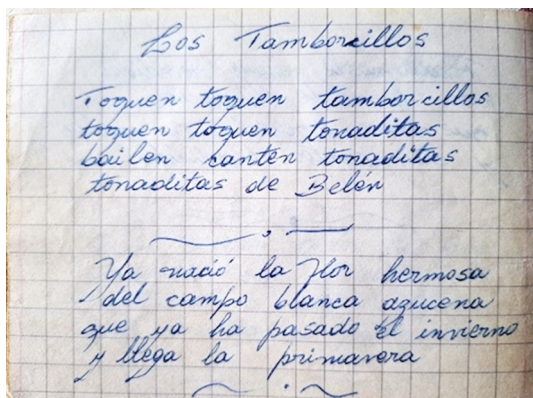 Los Tamborcillos
Toquen toquen tamborcillos
toquen toquen tonaditas
bailen canten tonaditas
tonaditas de Belén
Ya nació la Flor hermosa
del campo blanca azucena
que ya ha pasado el invierno
y llega la primavera